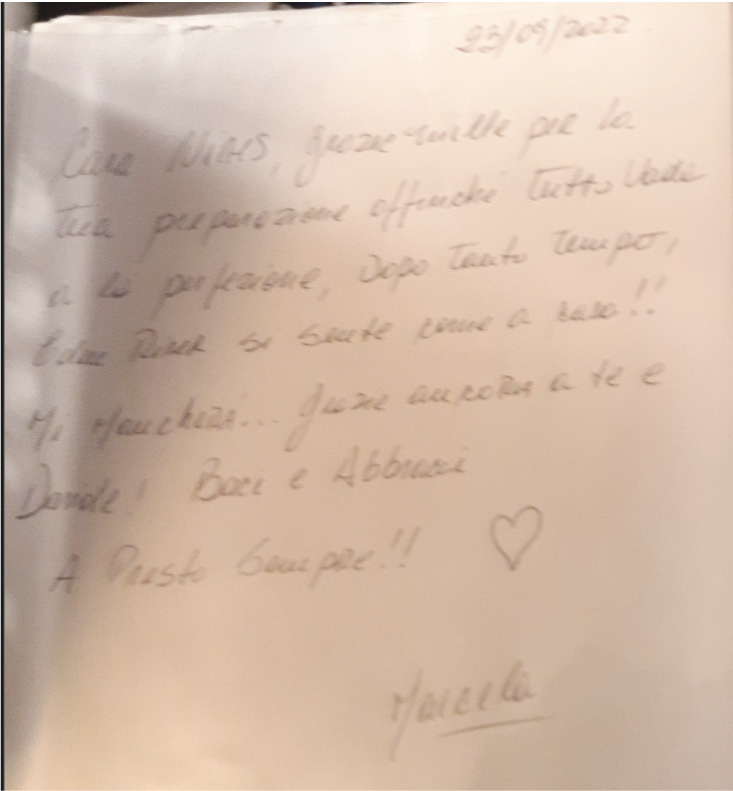 23/09/2022
Cara Nives, grazie mille per la
tua preparazione affinché tutto vada
a la perfezione, Dopo tanto tempo,
si sente come a casa!!
Mi Mancherai... grazie ancora a te e
Daniele! Baci e Abbracci
A Presto Sempre!! ♡
Marcela